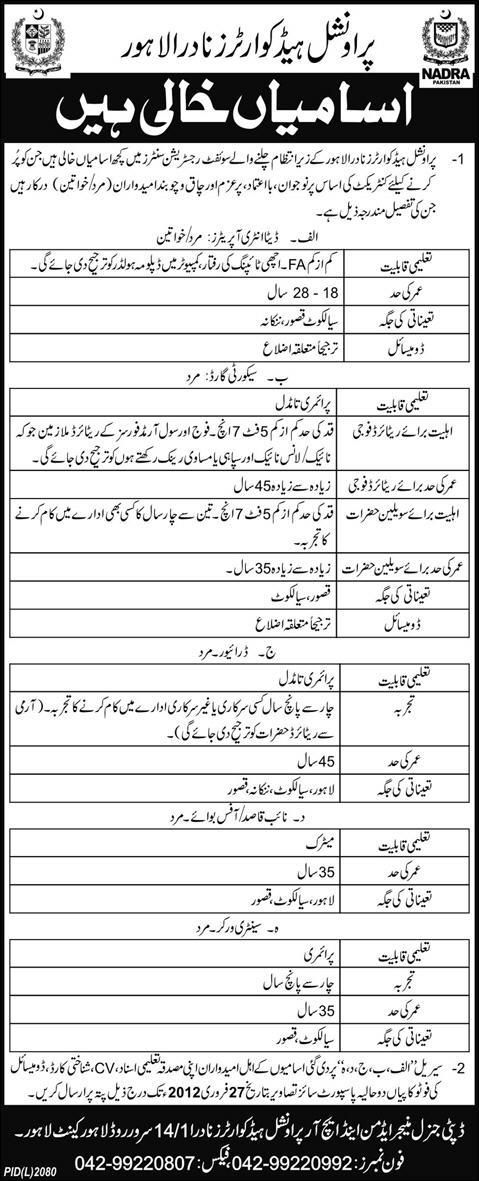 پراونشل ہیڈ کوارٹرز نادرا لاہور
NADRA
PAKISTAN
اسامیاں خالی ہیں
1- پراونشل ہیڈ کوارٹرز نادرا لاہور کے زیر انتظام چلنے والے سوئفٹ رجسٹریشن سنٹرز میں کچھ اسامیاں خالی ہیں جن کو پُر
کرنے کیلئے کنٹریکٹ کی اساس پر نوجوان، بااعتماد، پرعزم اور چاق و چوبند امیدواران (مرد/خواتین) درکار ہیں
جن کی تفصیل مندرجہ ذیل ہے۔
الف۔ ڈیٹا انٹری آپریٹرز: مرد/خواتین
تعلیمی قابلیت کم از کم FA۔ اچھی ٹائپنگ کی رفتار، کمپیوٹر میں ڈپلومہ ہولڈر کو ترجیح دی جائے گی۔
عمر کی حد 18 - 28 سال
تعیناتی کی جگہ سیالکوٹ قصور، ننکانہ
ڈومیسائل ترجیحاً متعلقہ اضلاع
ب۔ سیکورٹی گارڈ: مرد
تعلیمی قابلیت پرائمری تا مڈل
اہلیت برائے ریٹائرڈ فوجی قد کی حد کم از کم 5 فٹ 7 انچ۔ فوج اور سول آرمڈ فورسز کے ریٹائرڈ ملازمین جو کہ
نائیک/لانس نائیک اور سپاہی یا مساوی رینک رکھتے ہوں کو ترجیح دی جائے گی۔
عمر کی حد برائے ریٹائرڈ فوجی زیادہ سے زیادہ 45 سال
اہلیت برائے سویلین حضرات قد کی حد کم از کم 5 فٹ 7 انچ۔ تین سے چار سال کا کسی بھی ادارے میں کام کرنے
کا تجربہ۔
عمر کی حد برائے سویلین حضرات زیادہ سے زیادہ 35 سال۔
تعیناتی کی جگہ قصور، سیالکوٹ
ڈومیسائل ترجیحاً متعلقہ اضلاع
ج۔ ڈرائیور۔ مرد
تعلیمی قابلیت پرائمری تا مڈل
تجربہ چار سے پانچ سال کسی سرکاری یا غیر سرکاری ادارے میں کام کرنے کا تجربہ۔ (آرمی
سے ریٹائرڈ حضرات کو ترجیح دی جائے گی)۔
عمر کی حد 45 سال
تعیناتی کی جگہ لاہور، سیالکوٹ، ننکانہ، قصور
د۔ نائب قاصد/آفس بوائے۔ مرد
تعلیمی قابلیت میٹرک
عمر کی حد 35 سال
تعیناتی کی جگہ لاہور، سیالکوٹ، قصور
ہ۔ سینٹری ورکر۔ مرد
تعلیمی قابلیت پرائمری
تجربہ چار سے پانچ سال
عمر کی حد 35 سال
تعیناتی کی جگہ سیالکوٹ، قصور
2- سیریل "الف، ب، ج، د، ہ" پر دی گئی اسامیوں کے اہل امیدواران اپنی مصدقہ تعلیمی اسناد، CV، شناختی کارڈ، ڈومیسائل
کی فوٹو کاپیاں دو حالیہ پاسپورٹ سائز تصاویر بتاریخ 27 فروری 2012ء تک درج ذیل پتہ پر ارسال کریں۔
ڈپٹی جنرل منیجر ایڈمن اینڈ ایچ آر پراونشل ہیڈ کوارٹرز نادرا 14/1 سرور روڈ لاہور کینٹ لاہور۔
فون نمبرز: 042-99220992، فیکس: 042-99220807
PID(L)2080